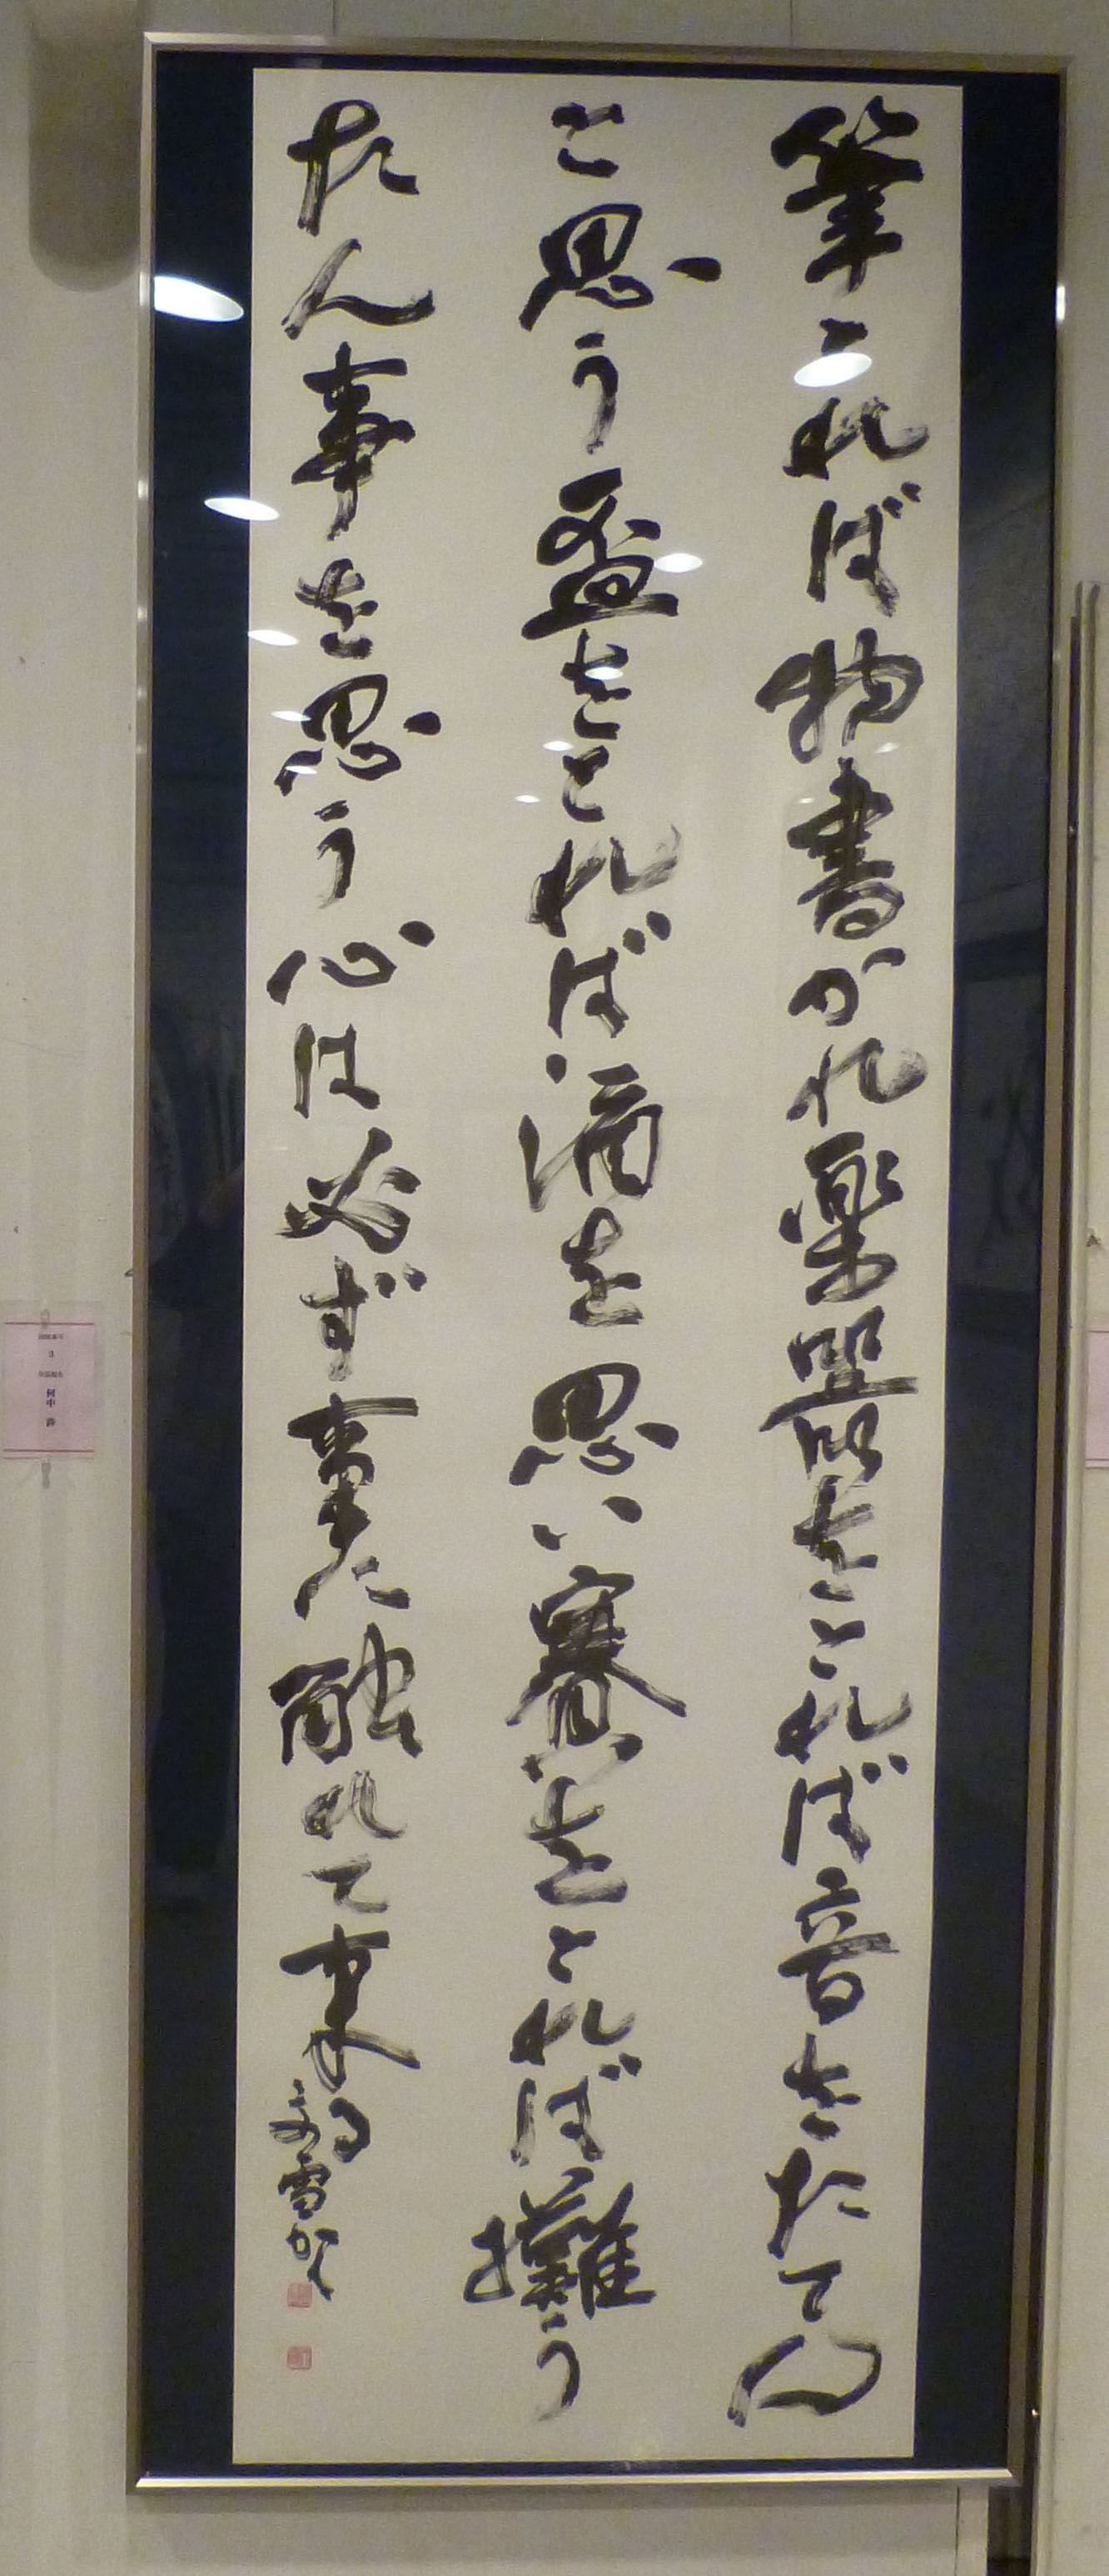 筆とれば物書かれ楽器をとれば音をたてん
と思う盃をとれば酒を思い賽をとれば攤う
たん事を思う心は必ず事に触れて来る
雪かく
3